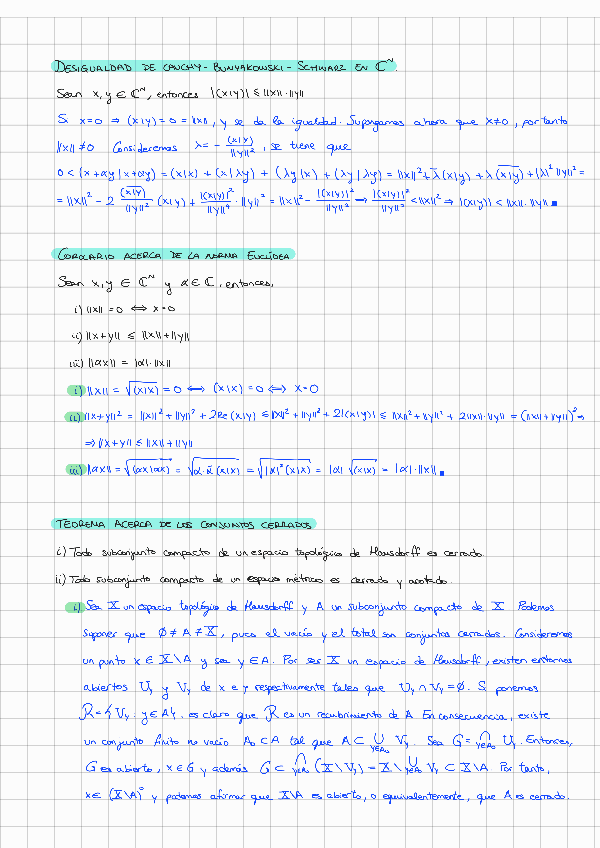 DESIGUALDAD DE CAUCHY - BUNYAKOWSKI - SCHWARZ EN ℂᴺ.
Sean x, y ∈ ℂᴺ, entonces |(x|y)| ≤ ||x||·||y||
Si x=0 ⇒ (x|y) = 0 = ||x||, y se da la igualdad. Supongamos ahora que x≠0, por tanto
||x|| ≠ 0 Consideremos λ = - (x|y)/||y||², se tiene que
0 < (x + αy | x + αy) = (x|x) + (x|λy) + (λy|x) + (λy|λy) = ||x||² + λ̄(x|y) + λ(x|y)‾ + |λ|² ||y||² =
= ||x||² - 2 (x|y)‾/||y||² (x|y) + |(x|y)|²/||y||⁴ · ||y||² = ||x||² - |(x|y)|²/||y||² → |(x|y)|²/||y||² < ||x||² ⇒ |(x|y)| < ||x||·||y|| ■
COROLARIO ACERCA DE LA NORMA EUCLÍDEA
Sean x, y ∈ ℂᴺ y α ∈ ℂ, entonces,
i) ||x|| = 0 ⟺ x=0
ii) ||x+y|| ≤ ||x||+||y||
iii) ||αx|| = |α|·||x||
i) ||x|| = √(x|x) = 0 ⟺ (x|x) = 0 ⟺ x=0
ii) ||x+y||² = ||x||² + ||y||² + 2Re(x|y) ≤ ||x||² + ||y||² + 2|(x|y)| ≤ ||x||² + ||y||² + 2||x||·||y|| = (||x||+||y||)² ⇒
⇒ ||x+y|| ≤ ||x||+||y||
iii) ||αx|| = √(αx|αx) = √α·ᾱ(x|x) = √|α|²(x|x) = |α| √(x|x) = |α|·||x|| ■
TEOREMA ACERCA DE LOS CONJUNTOS CERRADOS
i) Todo subconjunto compacto de un espacio topológico de Hausdorff es cerrado.
ii) Todo subconjunto compacto de un espacio métrico es cerrado y acotado.
i) Sea X un espacio topológico de Hausdorff y A un subconjunto compacto de X Podemos
suponer que ∅ ≠ A ≠ X, pues el vacío y el total son conjuntos cerrados. Consideremos
un punto x ∈ X\A y sea y ∈ A. Por ser X un espacio de Hausdorff, existen entornos
abiertos Uy y Vy de x e y respectivamente tales que Uy ∩ Vy = ∅. Si ponemos
R = {Vy : y ∈ A}, es claro que R es un recubrimiento de A En consecuencia, existe
un conjunto finito no vacío A₀ ⊂ A tal que A ⊂ ⋃y∈A₀ Vy. Sea G = ⋂y∈A₀ Uy. Entonces,
G es abierto, x ∈ G y además G ⊂ ⋂y∈A₀ (X\Vy) = X\⋃y∈A₀ Vy ⊂ X\A Por tanto,
x ∈ (X\A)° y podemos afirmar que X\A es abierto, o equivalentemente, que A es cerrado.